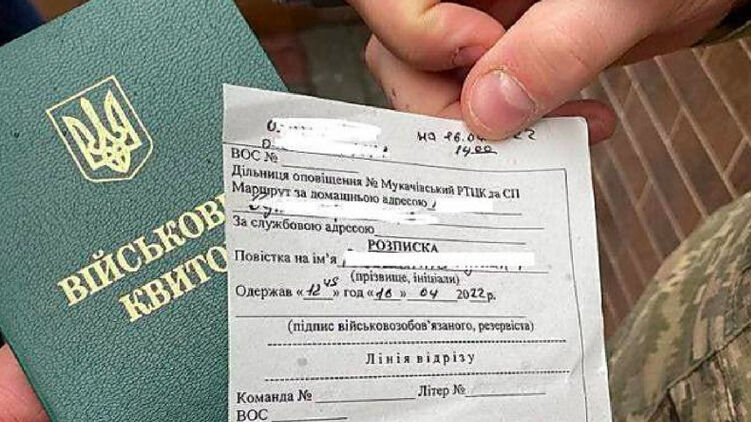 ВІЙСЬКОВИЙ
КВИТОК
на 16.04 22
14:00
ВОС №
Дільниця оповіщення № Мукачівський РТЦК да СП
Маршрут за домашньою адресою
За службовою адресою
РОЗПИСКА
Повістка на ім'я
(прізвище, ініціали)
Одержав « 12 45 » год « 16 » 04 2022 р.
(підпис військовозобов'язаного, резервіста)
Лінія відрізу
Команда № Літер №
ВОС